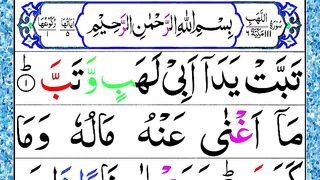 سُوْرَةُ اللَّهَبِ
بِسْمِ اللهِ الرَّحْمٰنِ الرَّحِيْمِ
تَبَّتْ يَدَآ اَبِيْ لَهَبٍ وَّ تَبَّ ۝١
مَآ اَغْنٰى عَنْهُ مَالُهٗ وَمَا